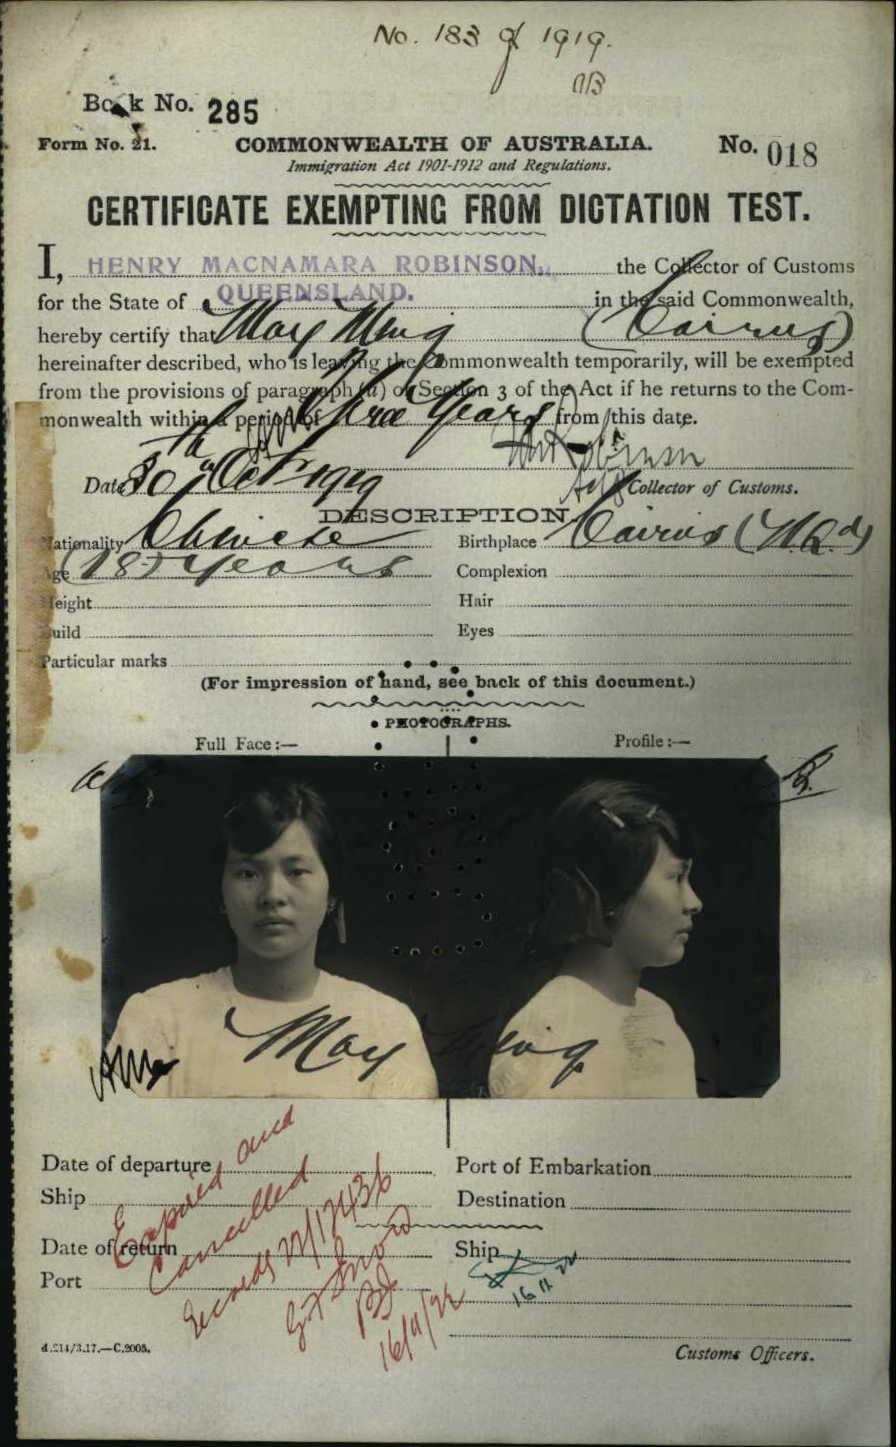 No. 183 of 1919.
Book No. 285
Form No. 21. COMMONWEALTH OF AUSTRALIA. No. 018
Immigration Act 1901-1912 and Regulations.
CERTIFICATE EXEMPTING FROM DICTATION TEST.
I, HENRY MACNAMARA ROBINSON, the Collector of Customs
for the State of QUEENSLAND. in the said Commonwealth,
hereby certify that May Meng (Cairns)
hereinafter described, who is leaving the Commonwealth temporarily, will be exempted
from the provisions of paragraph (a) of Section 3 of the Act if he returns to the Com-
monwealth within a period of Three Years from this date.
Date 30th Oct 1919 Collector of Customs.
DESCRIPTION
Nationality Chinese Birthplace Cairns (N.Qd)
Age (18) Years Complexion
Height Hair
Build Eyes
Particular marks
(For impression of hand, see back of this document.)
PHOTOGRAPHS.
Full Face:— Profile:—
May Meng
Date of departure Port of Embarkation
Ship Destination
Date of return Ship
Port
Expired and
Cancelled
Records 22/17436
16/11/22
16 11 22
d.214/3.17.—C.2005. Customs Officers.